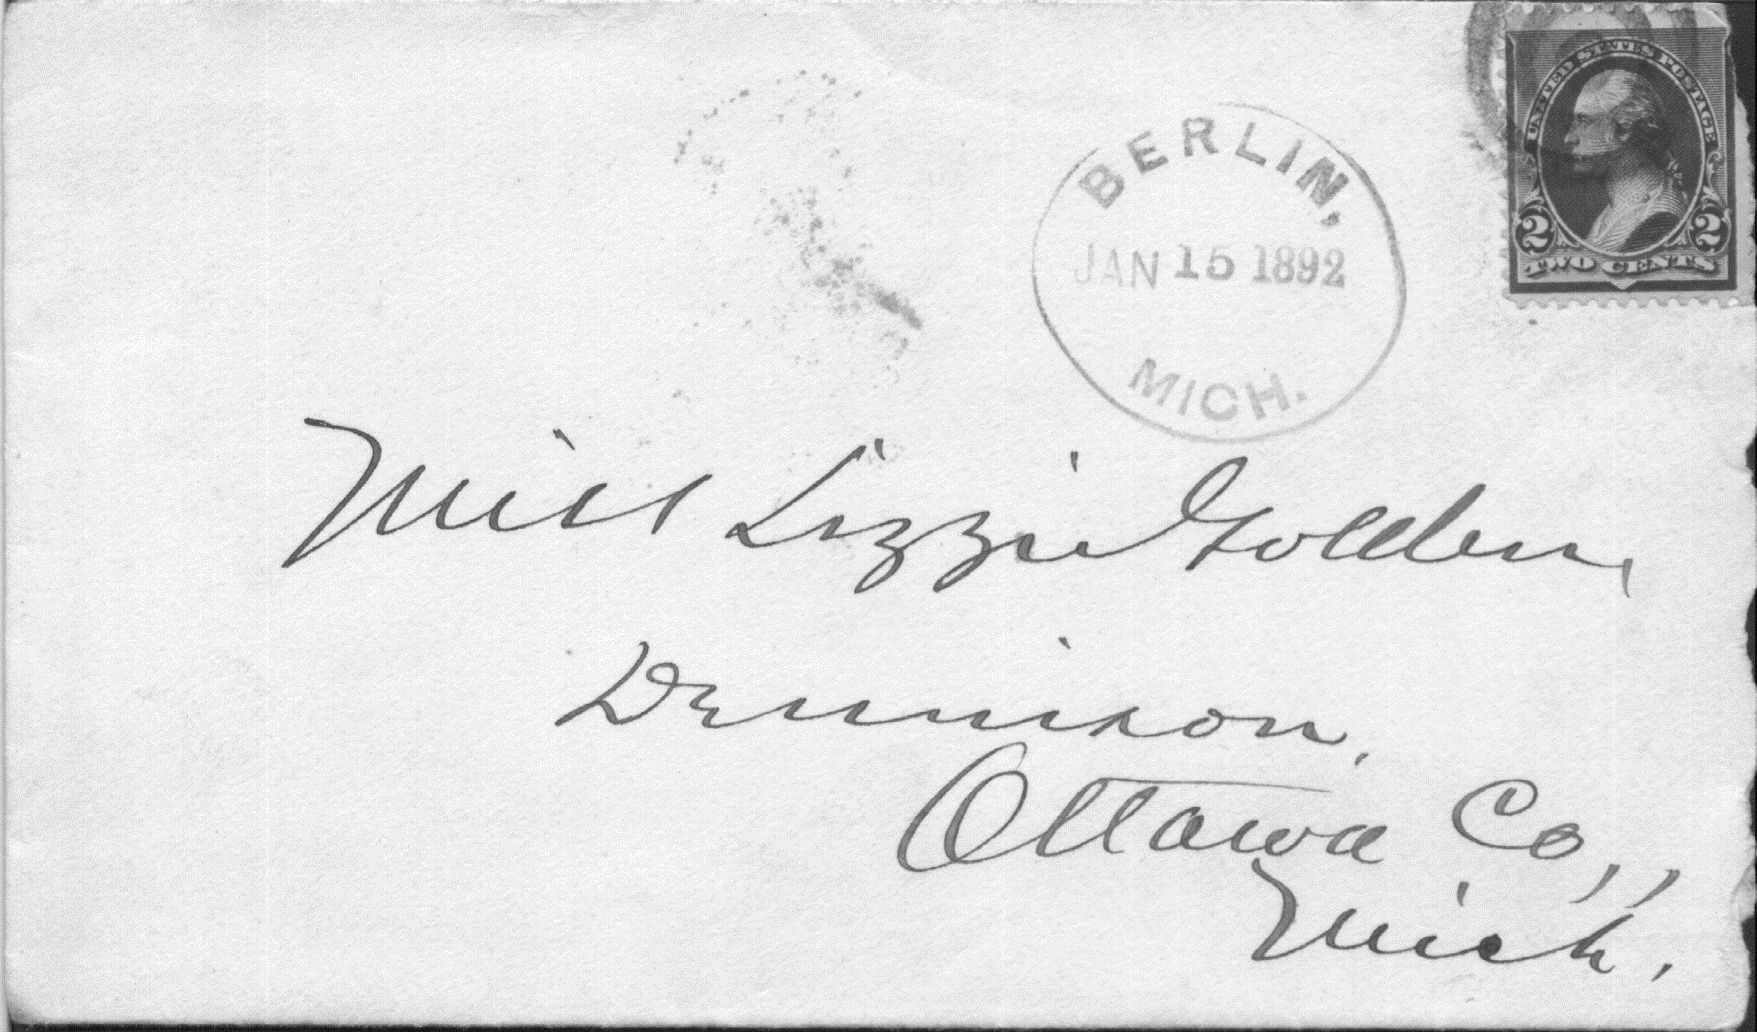 UNITED STATES POSTAGE
2 2
TWO CENTS
BERLIN,
JAN 15 1892
MICH.
Miss Lizzie Golden,
Dennison,
Ottawa Co.,
Mich.